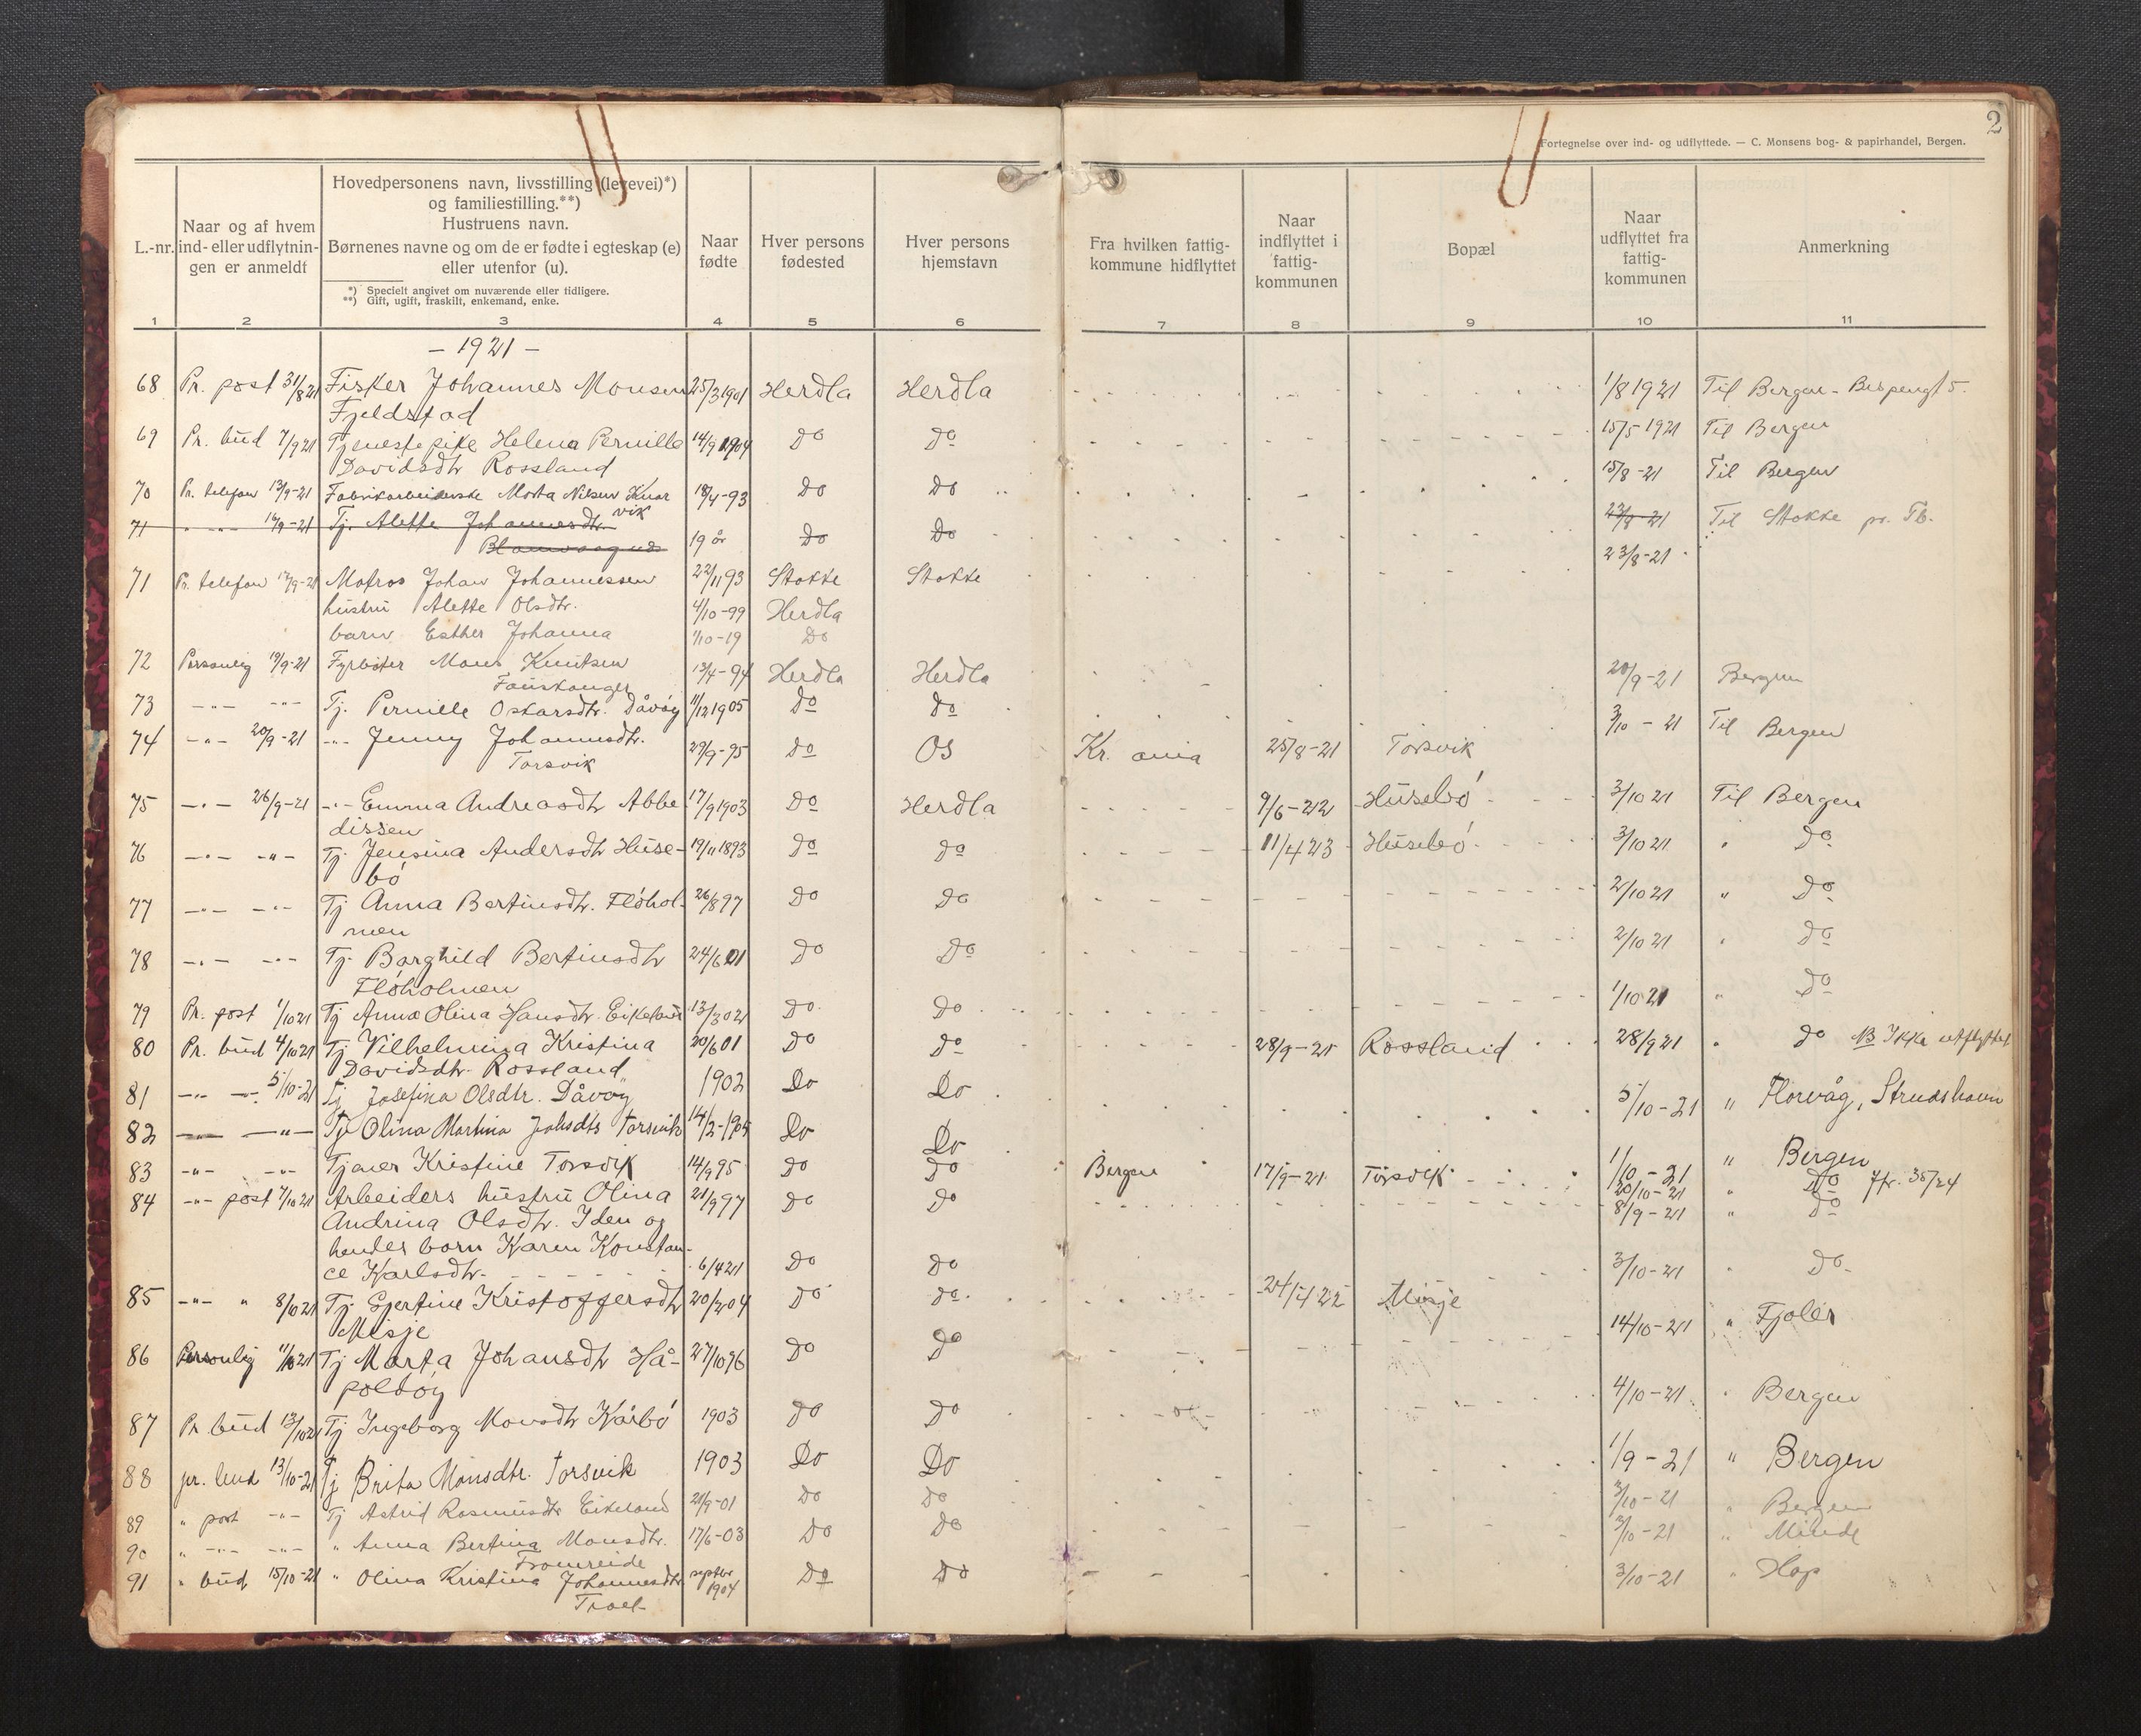 2
Fortegnelse over ind- og udflyttede. — C. Monsens bog- & papirhandel, Bergen.
L.-nr.
Naar og af hvem ind- eller udflytningen er anmeldt
Hovedpersonens navn, livsstilling (levevei)*)
og familiestilling.**)
Hustruens navn.
Børnenes navne og om de er fødte i egteskap (e)
eller utenfor (u).
*) Specielt angivet om nuværende eller tidligere.
**) Gift, ugift, fraskilt, enkemand, enke.
Naar fødte
Hver persons fødested
Hver persons hjemstavn
Fra hvilken fattigkommune hidflyttet
Naar indflyttet i fattigkommunen
Bopæl
Naar udflyttet fra fattigkommunen
Anmerkning
1 2 3 4 5 6 7 8 9 10 11
– 1921 –
68 Pr. post 31/8 21 Fisker Johannes Monsen 25/3 1901 Herdla Herdla 1/8 1921 Til Bergen
Fjeldstad
69 Pr. bud 7/9 21 Tjenestepike Helena Pernille 14/9 1904 Do Do 15/5 1921 Til Bergen
Davidsdtr Rossland
70 Pr. telefon 13/9-21 Fabrikarbeiderske Marta Nilsen Knar 18/4-93 Do Do 15/8-21 Til Bergen
vik
71 " -"- 16/9-21 Tj. Alette Johannesdtr. 19 år Do Do 23/8-21 Til Stokke pr. Tb.
23/8-21
71 Pr. telefon 17/9-21 Matros Johan Johannessen 22/11 93 Stokke Stokke
hustru Alette Olsdtr. 4/10-99 Herdla
barn Esther Johanna 1/10-19 Do
72 Personlig 19/9-21 Fyrbøter Mons Knutsen 13/4-94 Herdla Herdla 20/9-21 Bergen
Fauskanger
73 -"- -"- Tj. Pernille Oskarsdtr. Dåvøy 11/12 1905 Do Do 3/10-21 Til Bergen
74 -"- 20/9-21 -"- Jenny Johannesdtr. 29/9-95 Do Os Kr. ania 25/8-21 Torsvik
Torsvik
75 -"- 26/9-21 -"- Emma Andreasdtr Abbe 17/9 1903 Do Herdla 9/6-22 Husebø 3/10 21 Til Bergen
dissen
76 -"- -"- Tj. Jensina Andersdtr Huse- 19/11 1893 Do Do 11/4 23 Husebø 3/10 21 " Do
bø
77 -"- -"- Tj Anna Bertinsdtr. Fløhol- 26/8 97 Do Do 2/10 21 " Do
men
78 -"- -"- Tj. Borghild Bertinsdtr 24/6 01 Do Do 2/10 21 " Do
Fløholmen
79 Pr. post 1/10 21 Tj Anna Olina Hansdtr. Eikeland 13/3 02 Do Do 1/10 21 " Do
80 Pr. bud 4/10 21 Tj Vilhelmina Kristina 20/6 01 Do Do 28/9-21 Rossland 28/9 21 " Do NB Ikke utflyttet
Davidsdtr. Rossland
81 -"- -"- 5/10-21 Tj Josefina Olsdtr. Dåvøy 1902 Do Do 5/10-21 " Florvåg, Strudshavn
82 -"- -"- Tj Olina Martina Johsdtr Torsvik 14/2-1905 Do Do 1/10-21 " Bergen
83 -"- -"- Tjener Kristine Torsvik 14/9 95 Do Do Bergen 17/9-21 Torsvik 20/10-21 " Do Jfr. 35/24
84 -"- post 7/10 21 Arbeiders hustru Olina 21/9 97 Do Do 8/9-21 " Do
Andrina Olsdtr. Iden og
hendes barn Karen Konstan-
ce Karlsdtr. 6/4 21 Do Do
85 -"- " 8/10 21 Tj. Gjertine Kristoffersdtr 20/2 04 Do Do 24/4 22 Misje 3/10-21 " Do
Misje
86 Personlig 11/10 21 Tj Marta Johansdtr Hå- 27/10 96 Do Do 14/10-21 " Fjoler
poldøy
87 Pr bud 13/10 21 Tj Ingeborg Monsdtr Kårbø 1903 Do Do 4/10-21 " Bergen
88 pr. bud 13/10-21 Tj Brita Monsdtr. Torsvik 1903 Do Do 1/9-21 " Bergen
89 " post -"- Tj Astrid Rasmusdtr Eikeland 21/9-01 Do Do 3/10-21 " Bergen
90 " -"- -"- " Anna Bertina Monsdtr. 17/6-03 Do Do 3/10-21 " Minde
Fromreide
91 " bud 15/10-21 " Olina Kristina Johannesdtr septbr 1904 Do Do 3/10-21 " Hop